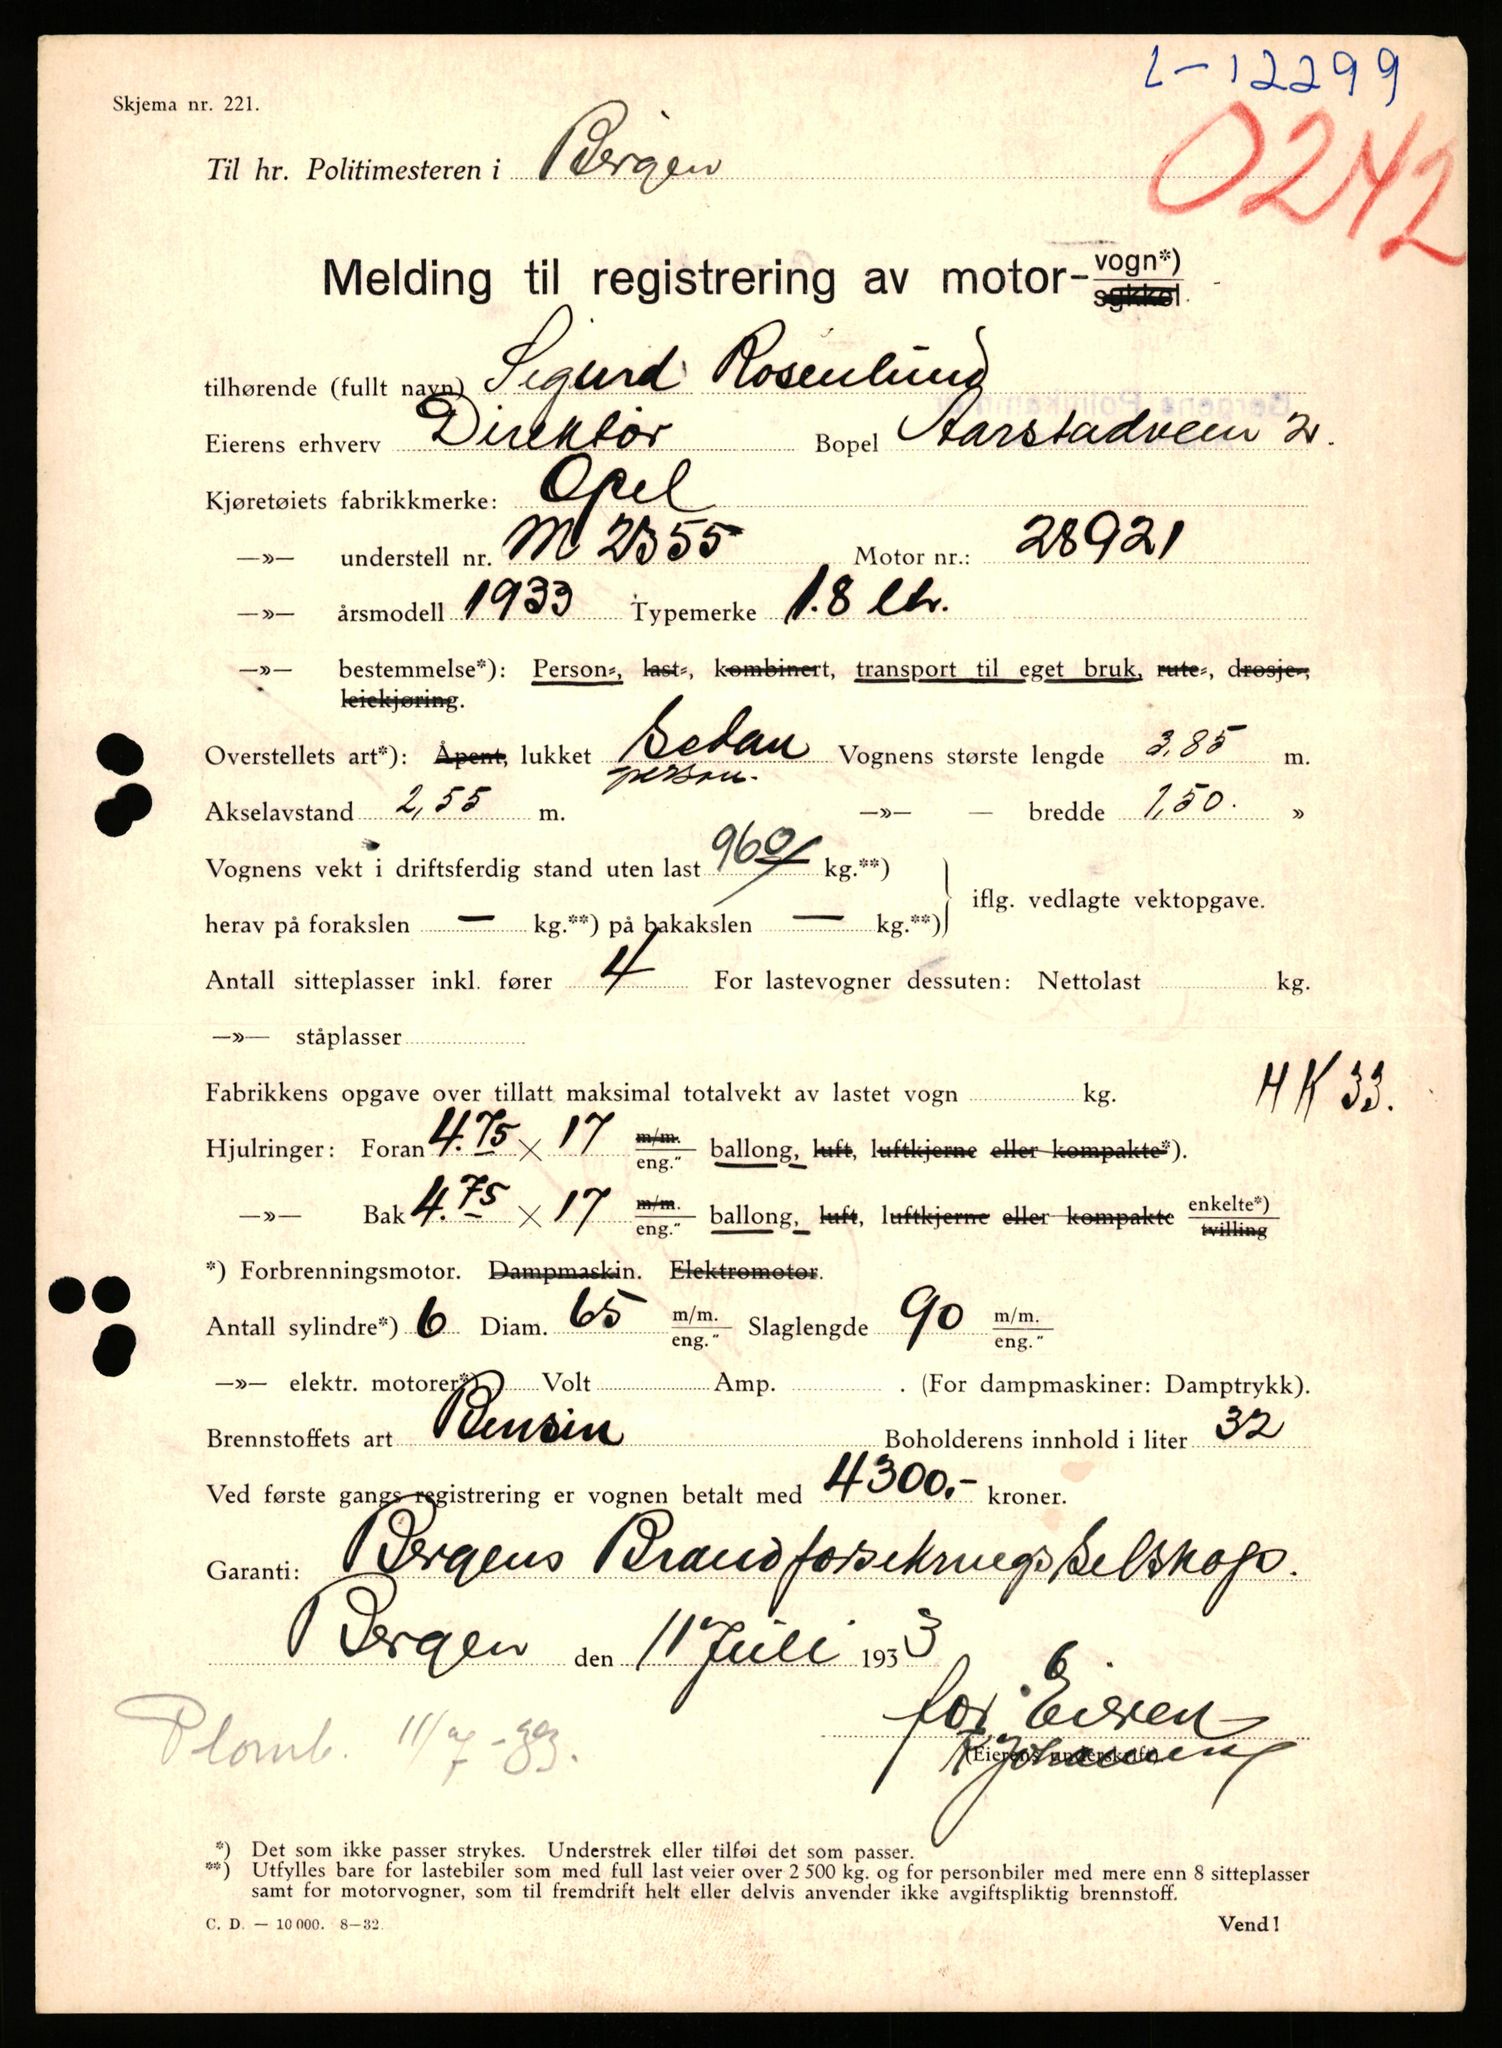 L-12299
Skjema nr. 221.
0242
Til hr. Politimesteren i Bergen
Melding til registrering av motor- vogn*)
sykkel.
tilhørende (fullt navn) Sigurd Rosenlund
Eierens erhverv Direktör Bopel Aarstadveien 2.
Kjøretøiets fabrikkmerke: Opel
—»— understell nr. M 2355 Motor nr.: 28921
—»— årsmodell 1933 Typemerke 1.8 ltr.
—»— bestemmelse*): Person-, last-, kombinert, transport til eget bruk, rute-, drosje-,
leiekjøring.
Overstellets art*): Åpent, lukket Sedan Vognens største lengde 3,85 m.
person.
Akselavstand 2,55 m. —»— — bredde 1,50. »
Vognens vekt i driftsferdig stand uten last 960 kg.**)
iflg. vedlagte vektopgave.
herav på forakslen — kg.**) på bakakslen — kg.**)
Antall sitteplasser inkl. fører 4 For lastevogner dessuten: Nettolast kg.
—»— ståplasser
Fabrikkens opgave over tillatt maksimal totalvekt av lastet vogn kg. HK 33.
Hjulringer: Foran 4.75 × 17 m/m. eng." ballong, luft, luftkjerne eller kompakte*).
—»— Bak 4.75 × 17 m/m. eng." ballong, luft, luftkjerne eller kompakte enkelte*) tvilling
*) Forbrenningsmotor. Dampmaskin. Elektromotor.
Antall sylindre*) 6 Diam. 65 m/m. eng." Slaglengde 90 m/m. eng."
—»— elektr. motorer*) Volt Amp. . (For dampmaskiner: Damptrykk).
Brennstoffets art Bensin Boholderens innhold i liter 32
Ved første gangs registrering er vognen betalt med 4300.- kroner.
Garanti: Bergens Brandforsekrings Selskap.
Bergen den 11 Juli 1933
for Eieren
(Eierens underskrift)
Plomb. 11/7-33.
*) Det som ikke passer strykes. Understrek eller tilføi det som passer.
**) Utfylles bare for lastebiler som med full last veier over 2 500 kg. og for personbiler med mere enn 8 sitteplasser
samt for motorvogner, som til fremdrift helt eller delvis anvender ikke avgiftspliktig brennstoff.
C. D. — 10 000. 8—32.
Vend!